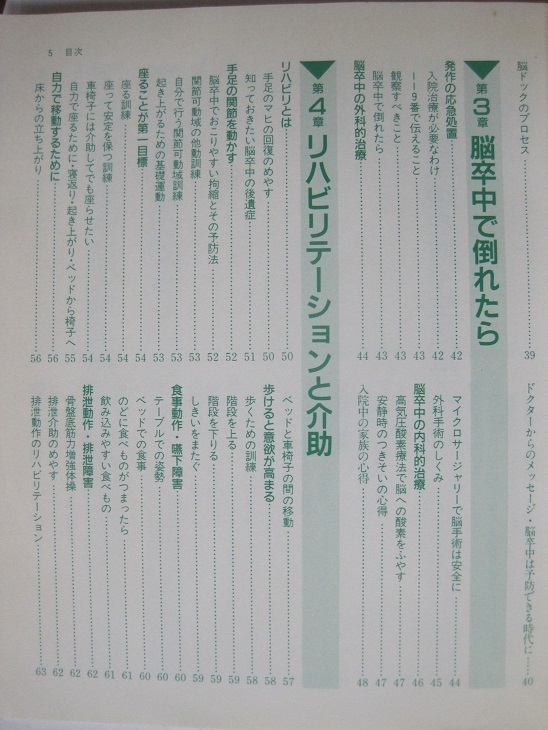 脳ドックのプロセス……39
ドクターからのメッセージ・脳卒中は予防できる時代に……40
第3章 脳卒中で倒れたら
発作の応急処置……42
入院治療が必要なわけ……42
119番で伝えること……43
観察すべきこと……43
脳卒中で倒れたら……43
脳卒中の外科的治療……44
マイクロサージャリーで脳手術は安全に……44
外科手術のしくみ……45
脳卒中の内科的治療……46
高気圧酸素療法で脳への酸素をふやす……47
安静時のつきそいの心得……47
入院中の家族の心得……48
第4章 リハビリテーションと介助
リハビリとは……50
手足のマヒの回復のめやす……50
知っておきたい脳卒中の後遺症……51
手足の関節を動かす……52
脳卒中でおこりやすい拘縮とその予防法……52
関節可動域の他動訓練……53
自分で行う関節可動域訓練……53
起き上がるための基礎運動……53
座ることが第一目標……54
座る訓練……54
座って安定を保つ訓練……54
車椅子には介助してでも座らせたい……54
自力で座るために・寝返り・起き上がり・ベッドから椅子へ……55
自力で移動するために……56
床からの立ち上がり……56
ベッドと車椅子の間の移動……57
歩けると意欲が高まる……58
歩くための訓練……58
階段を上る……59
階段を下りる……59
しきいをまたぐ……59
食事動作・嚥下障害……60
テーブルでの姿勢……60
ベッドでの食事……60
のどに食べものがつまったら……61
飲み込みやすい食べもの……61
排泄動作・排泄障害……62
骨盤底筋力増強体操……62
排泄介助のめやす……62
排泄動作のリハビリテーション……63
5 目次